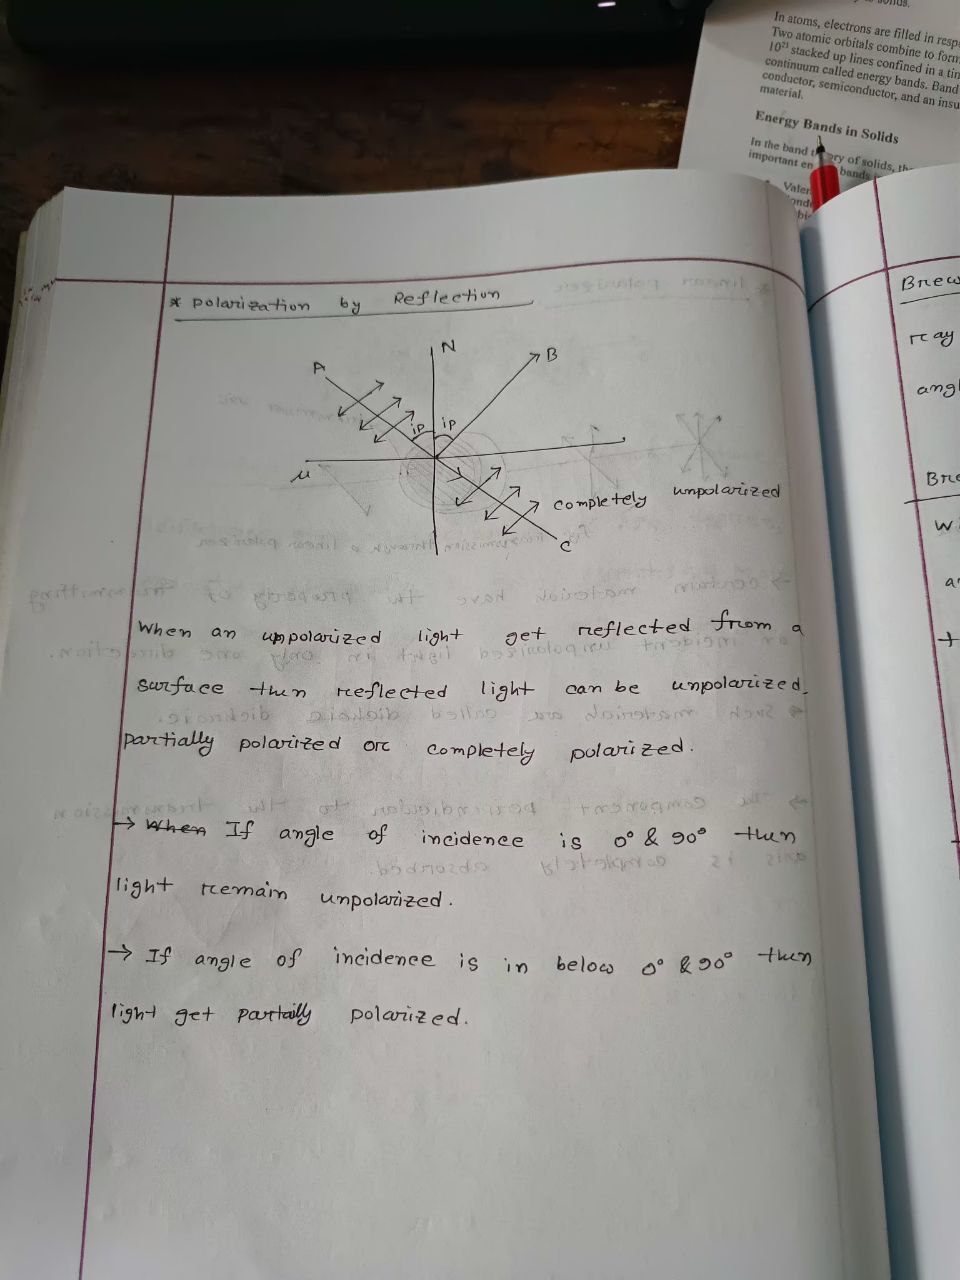 In atoms, electrons are filled in
Two atomic orbitals combine to form
10²¹ stacked up lines confined in a
continuum called energy bands. Band
conductor, semiconductor, and an
material.
Energy Bands in Solids
In the band of solids,
important bands
* Polarization by Reflection
N
A
B
ip ip
μ
completely unpolarized
C
When an unpolarized light get reflected from a
surface then reflected light can be unpolarized,
partially polarized or completely polarized.
→ When If angle of incidence is 0° & 90° then
light remain unpolarized.
→ If angle of incidence is in below 0° & 90° then
light get partailly polarized.
ray